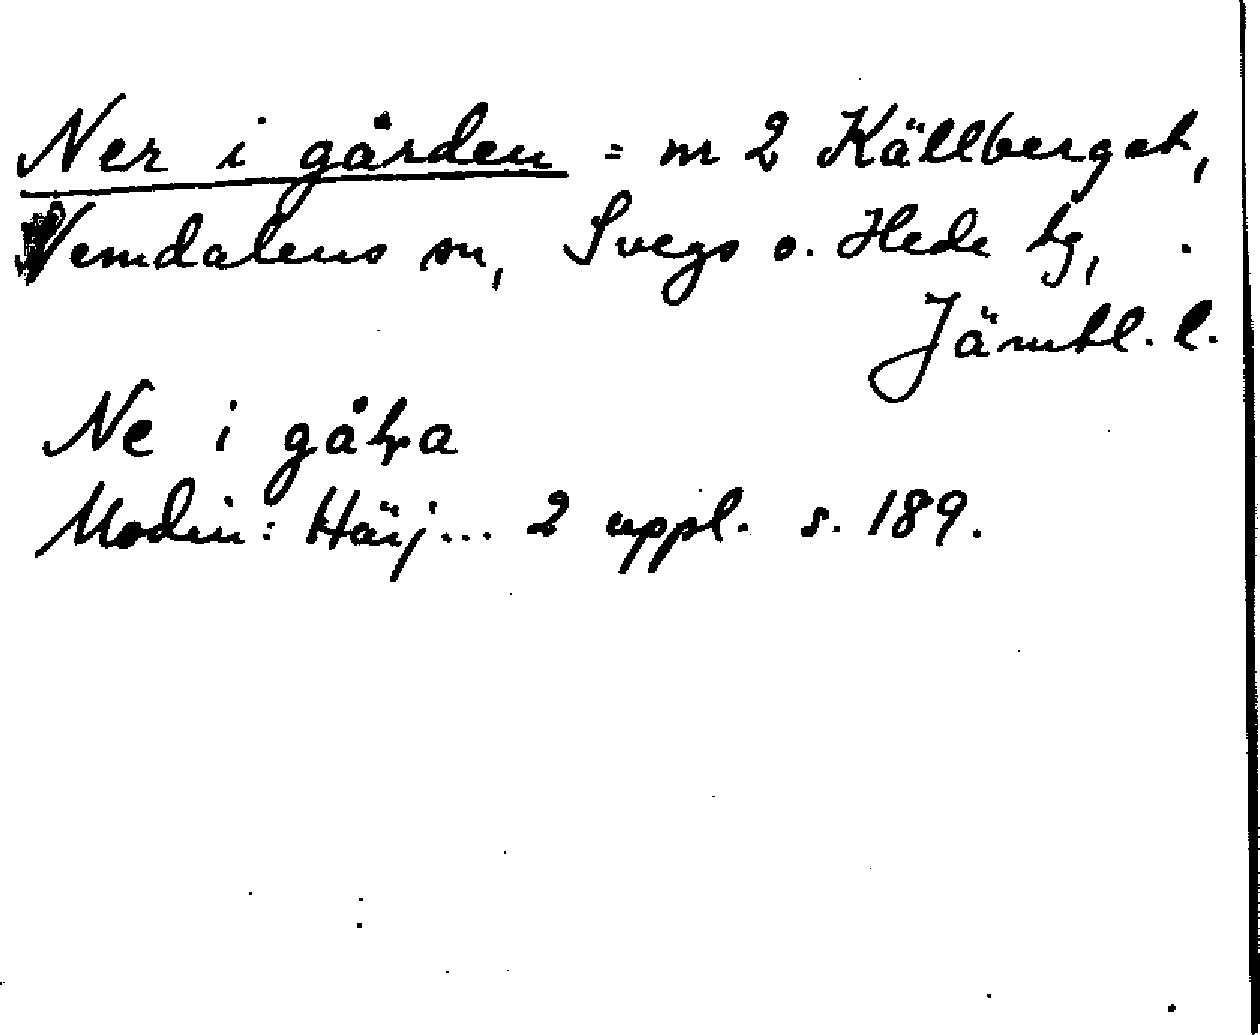 Ner i gården = nr 2 Källberget,
Vemdalens sn, Svegs o. Hede tg,
Jämtl. l.
Ne i gåLa
Modin: Härj... 2 uppl. s. 189.